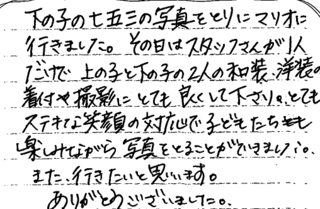 下の子の七五三の写真をとりにマリオに
行きました。その日はスタッフさんが1人
だけで上の子と下の子の2人の和装、洋装の
着付や撮影にとても良くして下さり。とても
ステキな笑顔の対応で子どもたちも
楽しみながら写真をとることができました。
また、行きたいと思います。
ありがとうございました。